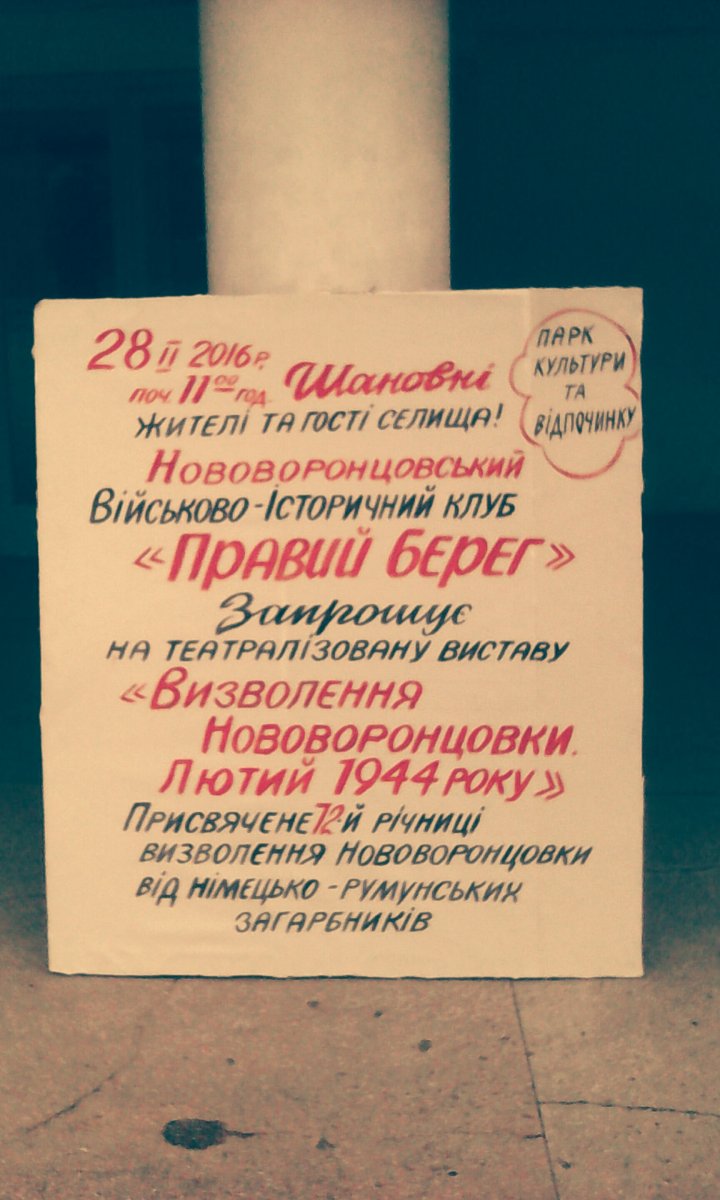 28 II 2016 р.
поч. 11⁰⁰ год. Шановні
жителі та гості селища!
Парк
культури
та
відпочинку
Нововоронцовський
Військово-Історичний клуб
«Правий берег»
Запрошує
на театралізовану виставу
«Визволення
Нововоронцовки.
Лютий 1944 року»
Присвячене 72-й річниці
визволення Нововоронцовки
від німецько-румунських
загарбників